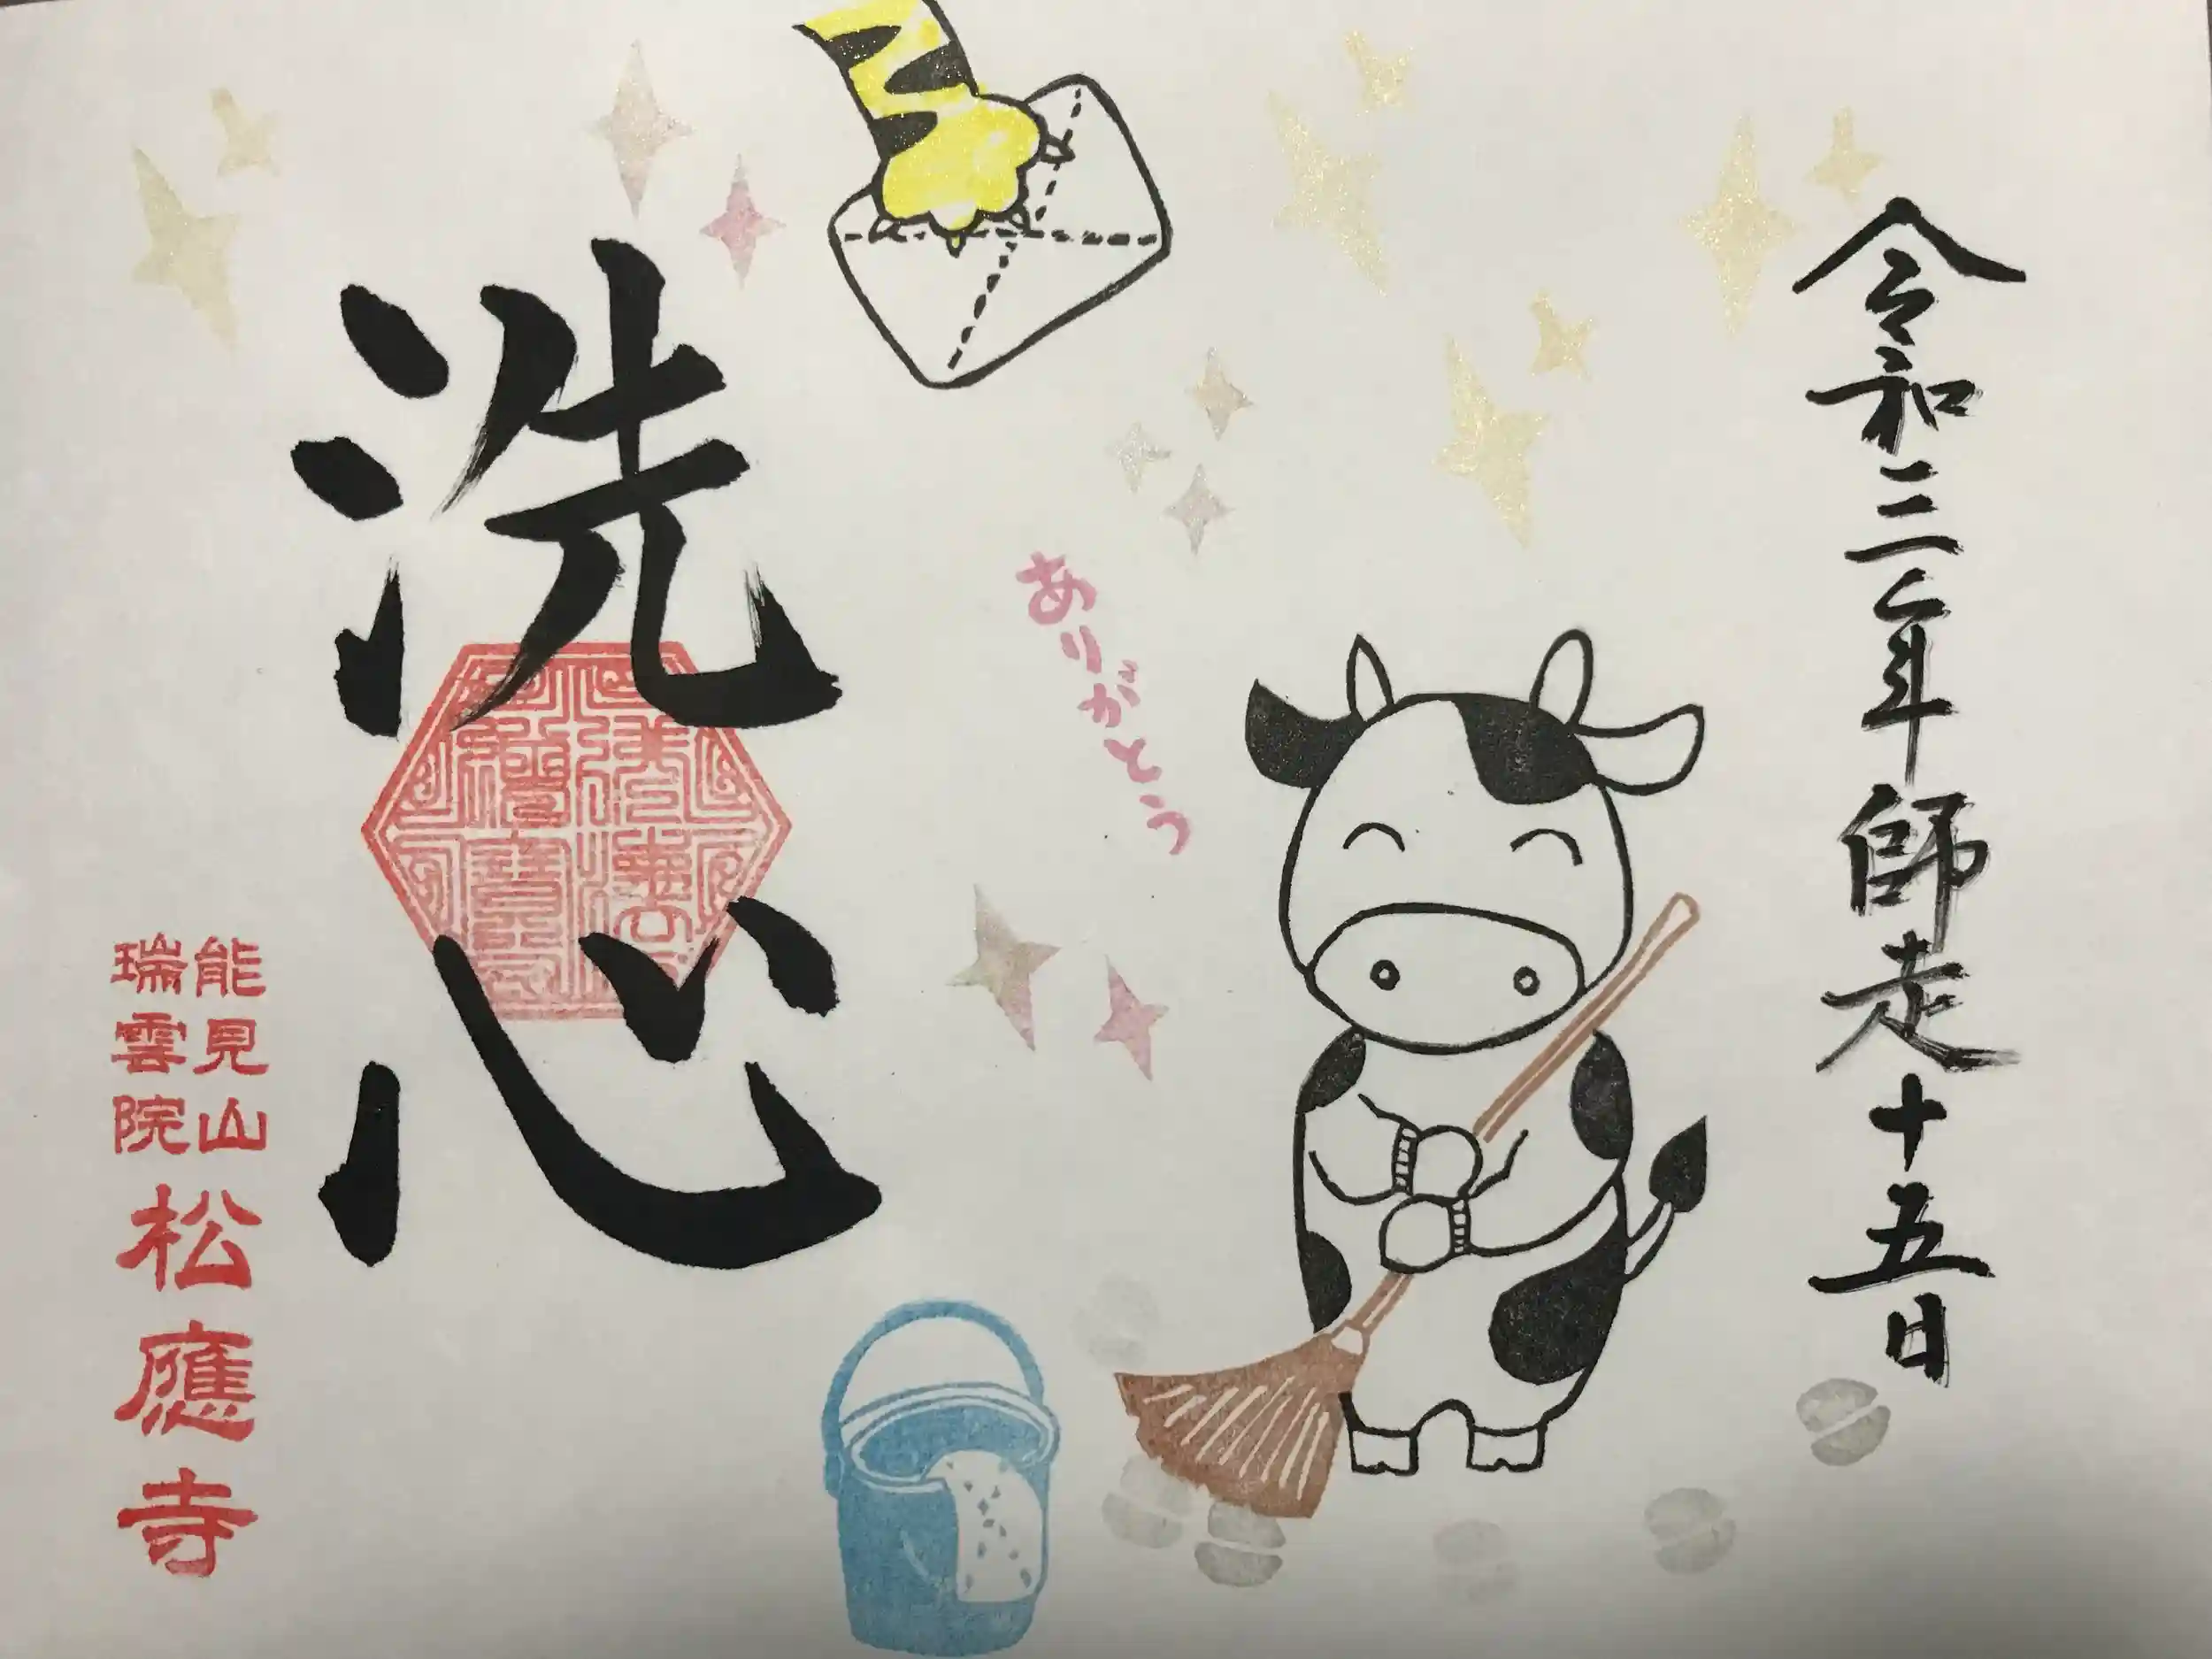 令和三年師走十五日
ありがとう
洗心
能見山
瑞雲院
松應寺